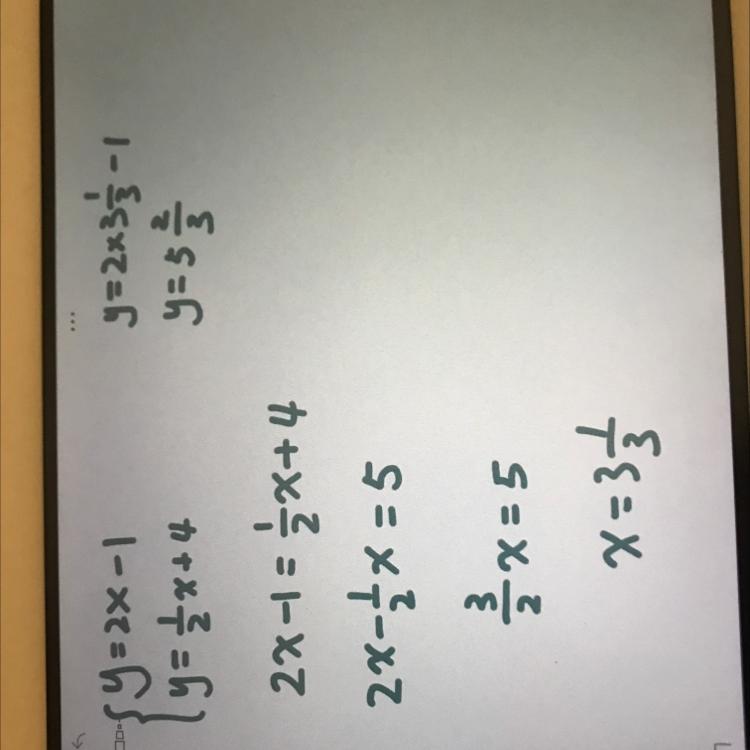 y=2x-1
y=1/2x+4
2x-1=1/2x+4
2x-1/2x=5
3/2x=5
x=3 1/3
...
y=2×3 1/3-1
y=5 2/3